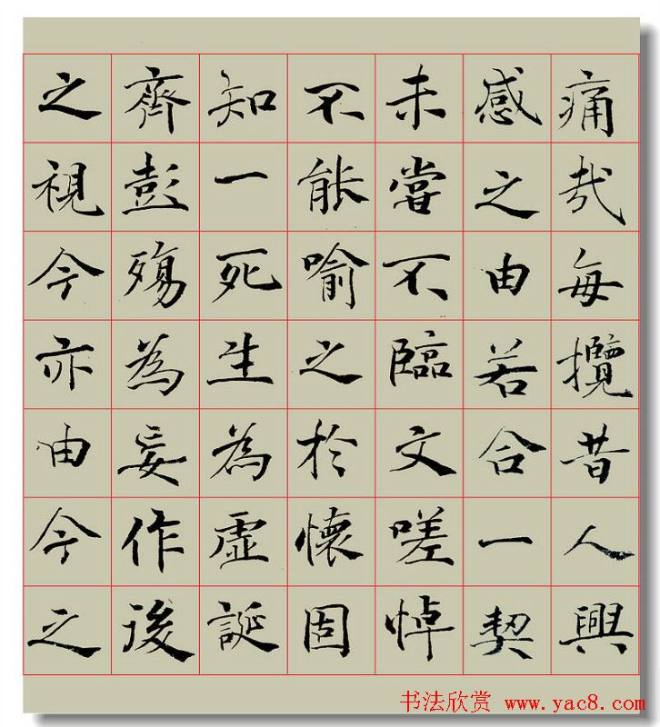 痛哉每攬昔人興
感之由若合一契
未嘗不臨文嗟悼
不能喻之於懷固
知一死生為虛誕
齊彭殤為妄作後
之視今亦由今之
书法欣赏 www.yac8.com